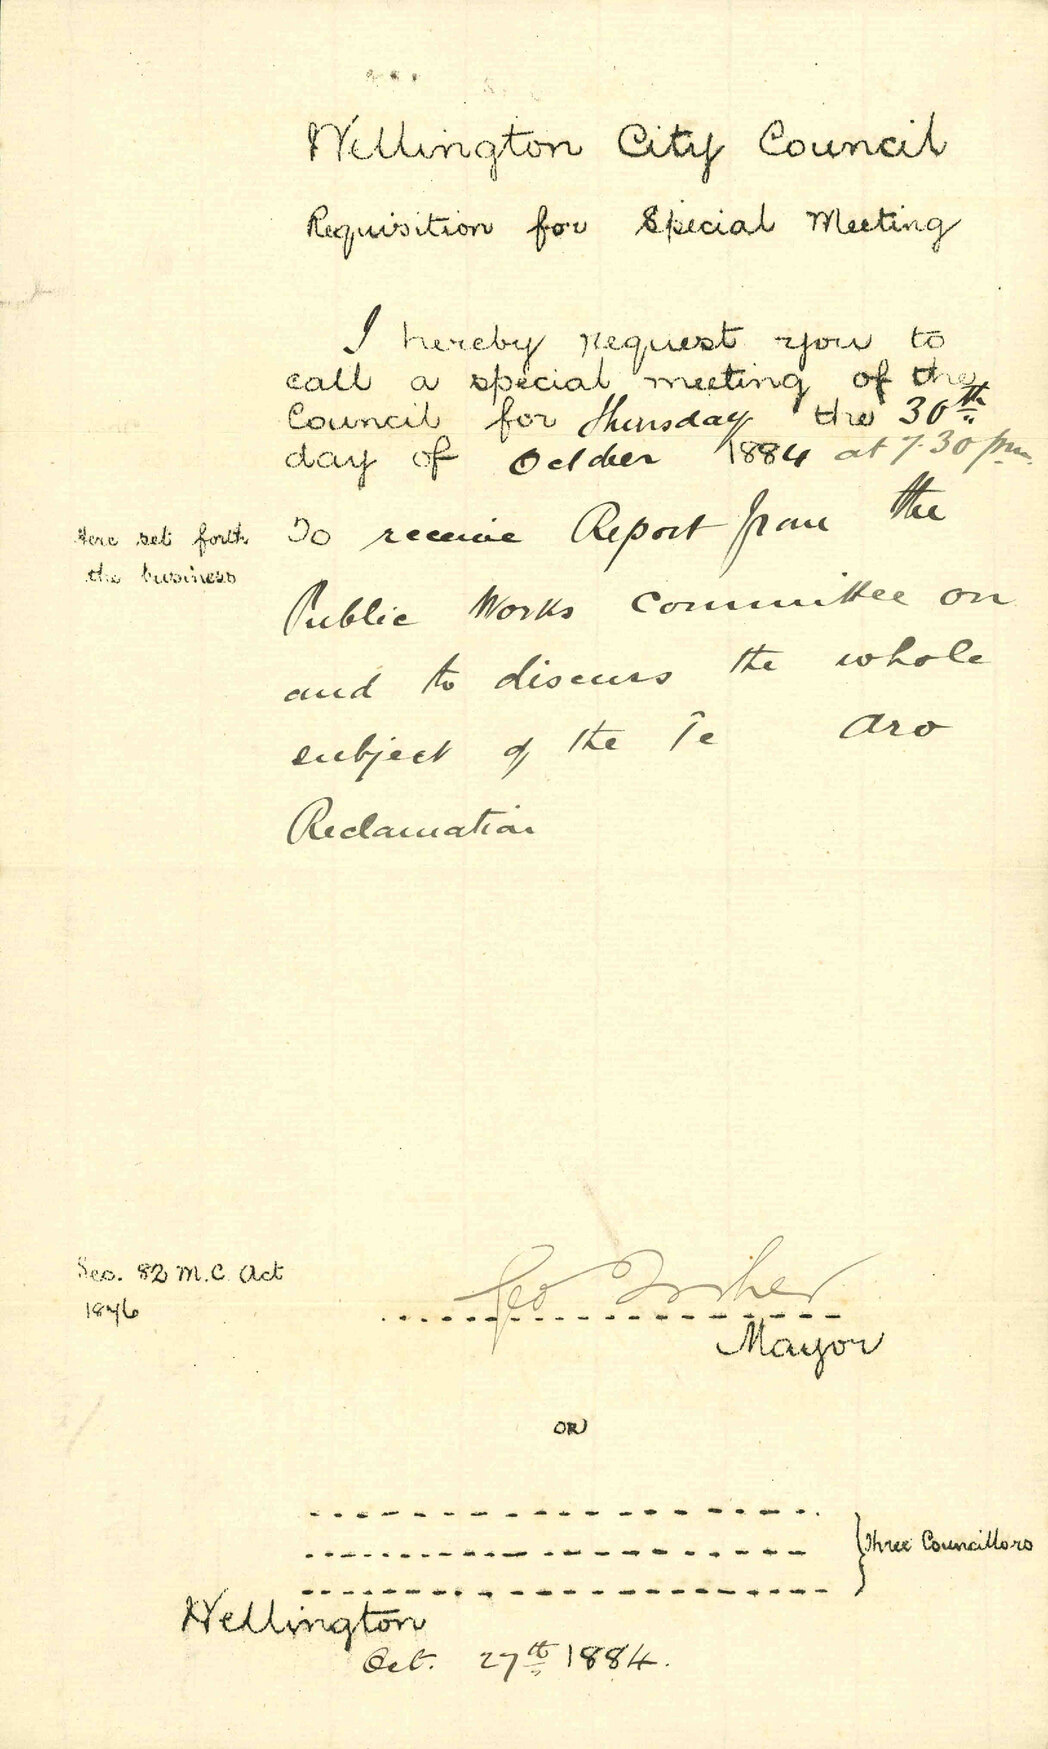 Wellington City Council
Requisition for Special Meeting
I hereby request you to
call a special meeting of the
Council for Thursday the 30th
day of October 1884 at 7.30 pm.
Here set forth
the business
To receive Report from the
Public Works Committee on
and to discuss the whole
subject of the Te Aro
Reclamation
Sec. 82 M.C. Act
1876
Geo Fisher
Mayor
OR
Three Councillors
Wellington
Oct. 27th 1884.